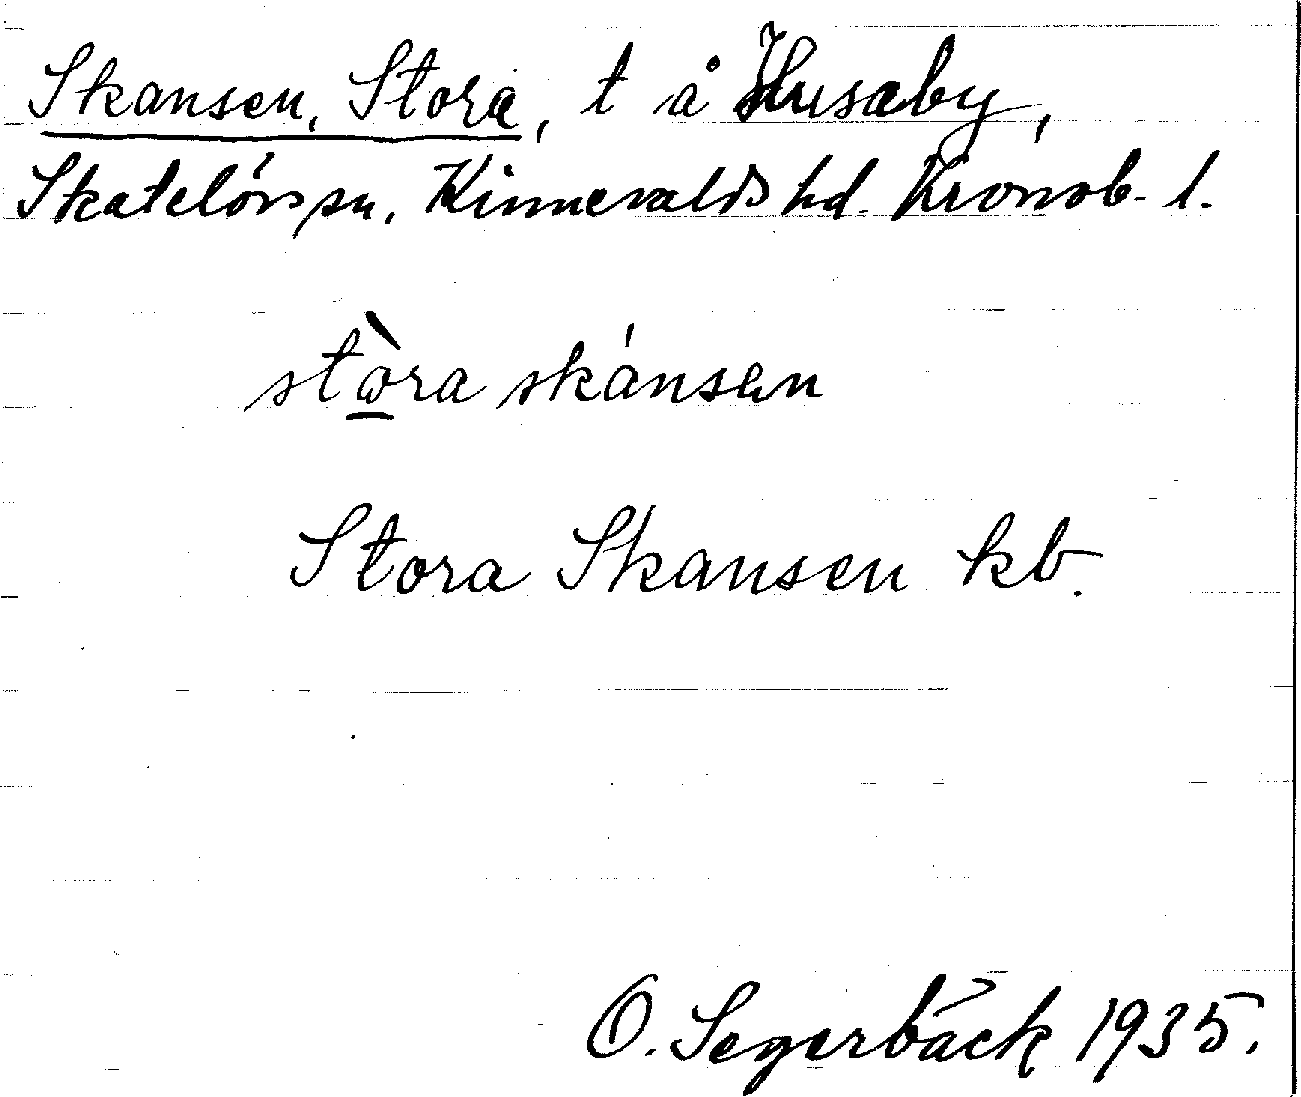 Skansen, Stora, t å Huseby,
Skatelövs sn. Kinnevalds hd. Kronob. l.
stòra skánsen
Stora Skansen kb.
O. Segerbäck 1935.